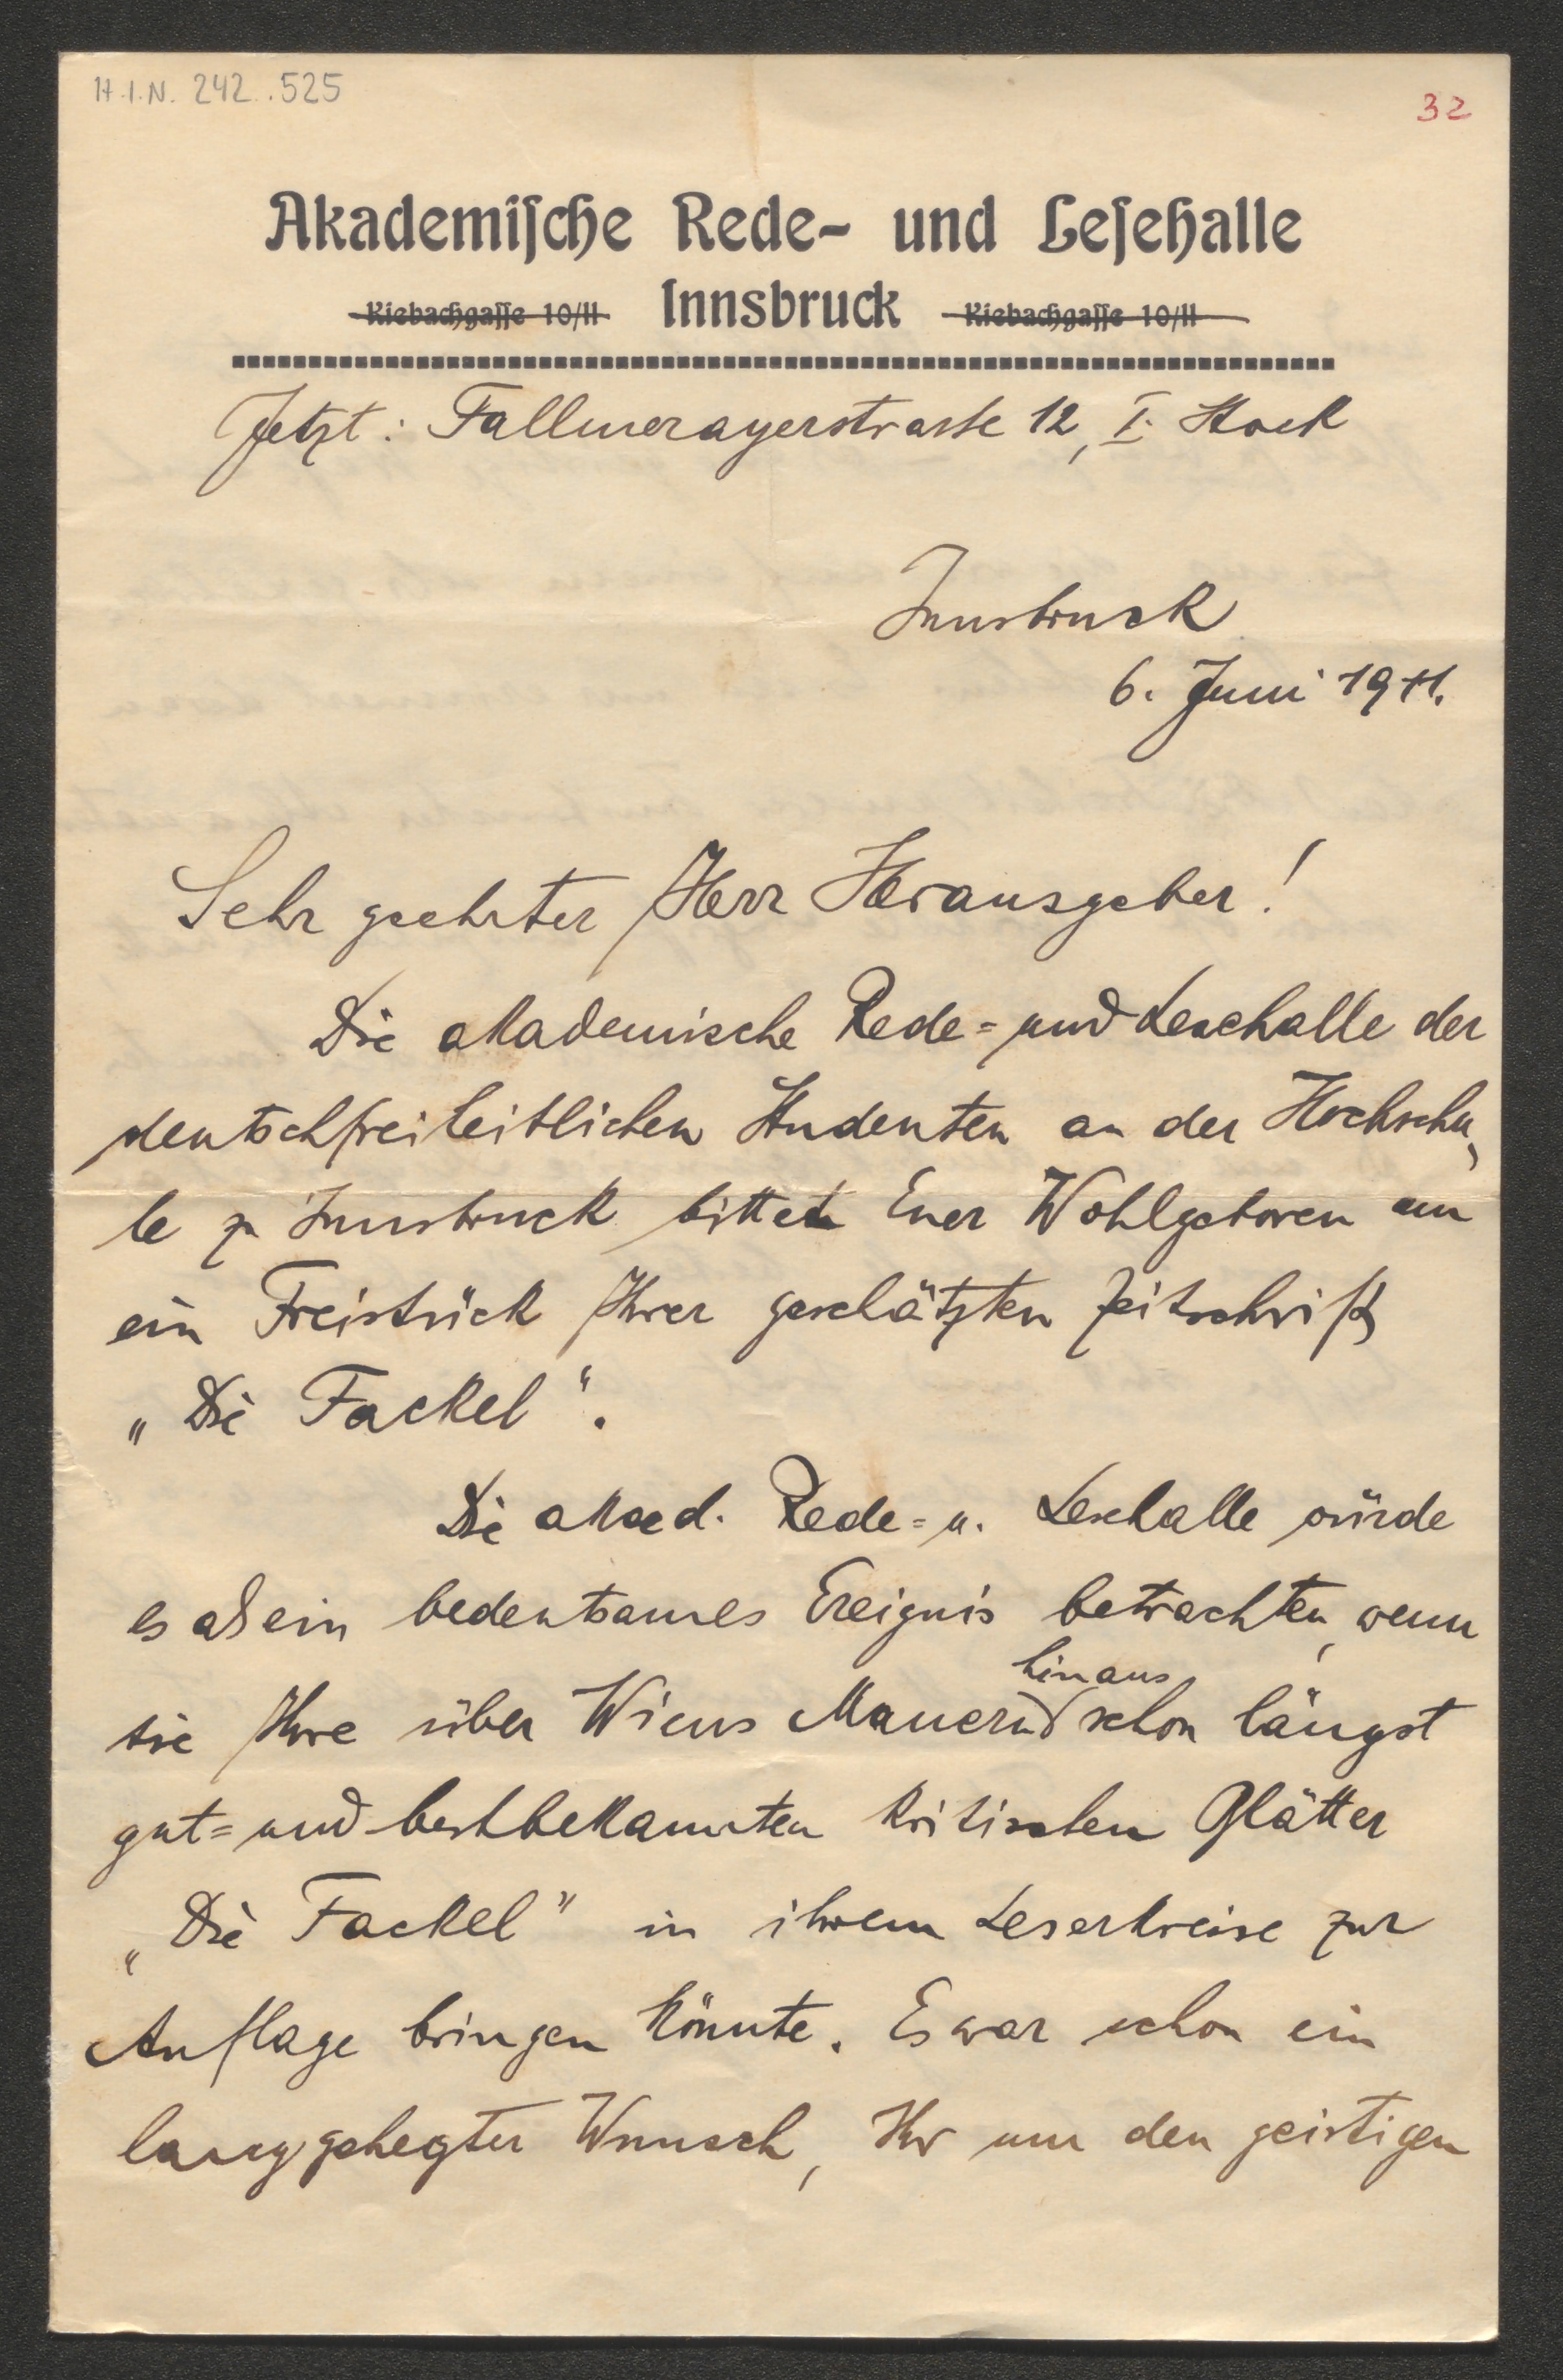 H.I.N. 242.525
32
Akademische Rede- und Lesehalle
Kiebachgasse 10/II Innsbruck Kiebachgasse 10/II
Jetzt: Fallmerayerstrasse 12, I. Stock
Innsbruck
6. Juni 1911.
Sehr geehrter Herr Herausgeber!
Die akademische Rede= und Lesehalle der
deutschfreiheitlichen Studenten an der Hochschu„
le zu Innsbruck bittet Euer Wohlgeboren um
ein Freistück Ihrer geschätzten Zeitschrift
„Die Fackel“.
Die akad. Rede= u. Lesehalle würde
es als ein bedeutsames Ereignis betrachten, wenn
hinaus
sie Ihre über Wiens Mauern schon längst
gut= und bestbekannten kritischen Blätter
„Die Fackel“ in ihrem Leserkreise zur
Auflage bringen könnte. Es war schon ein
langgehegter Wunsch, Ihr um den geistigen